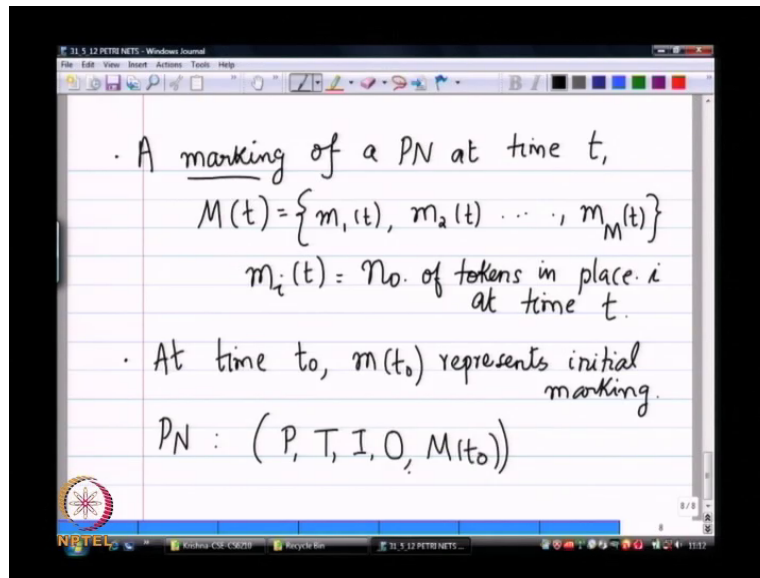 31_5_12 PETRI NETS - Windows Journal
File Edit View Insert Actions Tools Help
B I
· A marking of a PN at time t,
M(t) = { m₁(t), m₂(t) ....., m_M(t) }
mᵢ(t) = No. of tokens in place. i
at time t.
· At time to, m(t₀) represents initial
marking.
PN : (P, T, I, O, M(t₀))
8/8
8
NPTEL
Krishna-CSE-CS6210 Recycle Bin 31_5_12 PETRI NETS ... 11:12